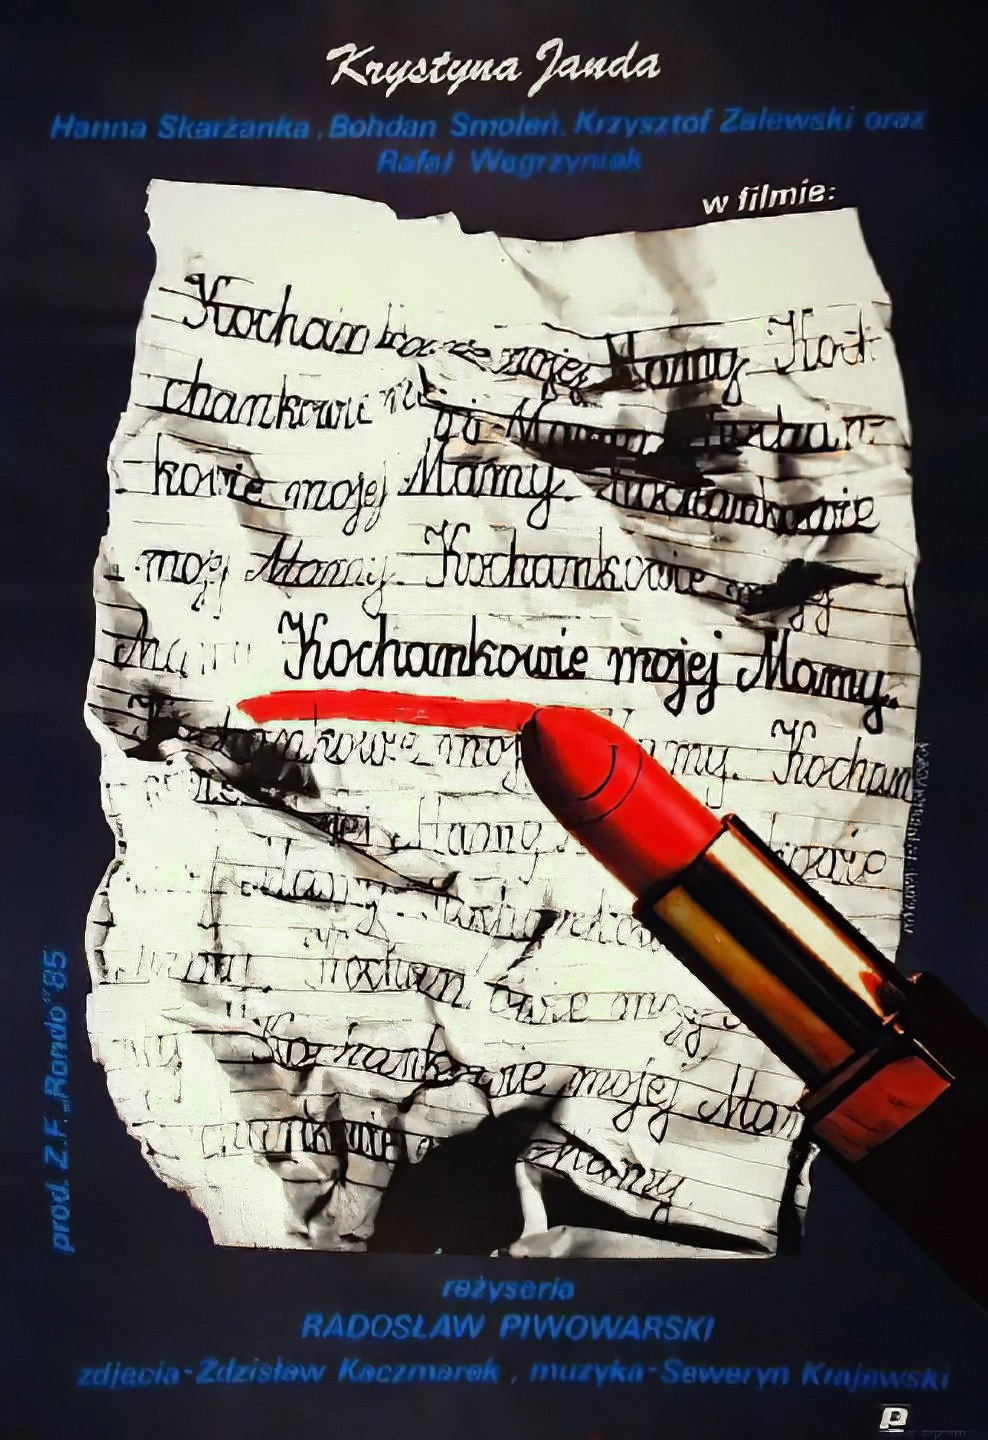 Krystyna Janda
Hanna Skarżanka, Bohdan Smoleń, Krzysztof Zalewski oraz
Rafał Węgrzyniak
w filmie:
Kochankowie mojej Mamy. Koch
chankowie mojej Mamy. Kochan
kowie mojej Mamy. Kochankowie
mojej Mamy. Kochankowie mojej
Mamy Kochankowie mojej Mamy.
Kochankowie mojej Mamy. Kochan
mojej Mamy
Mamy. Kochankow
Mamy. Kochankowie mojej
Kochankowie mojej Mam
Mamy
prod. Z.F. „Rondo" 85
reżyseria
RADOSŁAW PIWOWARSKI
zdjęcia-Zdzisław Kaczmarek, muzyka-Seweryn Krajewski
P